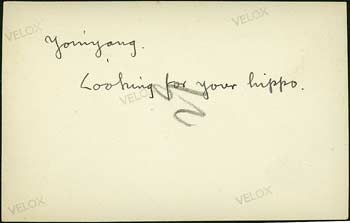 VELOX
Yoruyang.
Looking for your hippo.
VELOX
VELOX
VELOX
VELOX